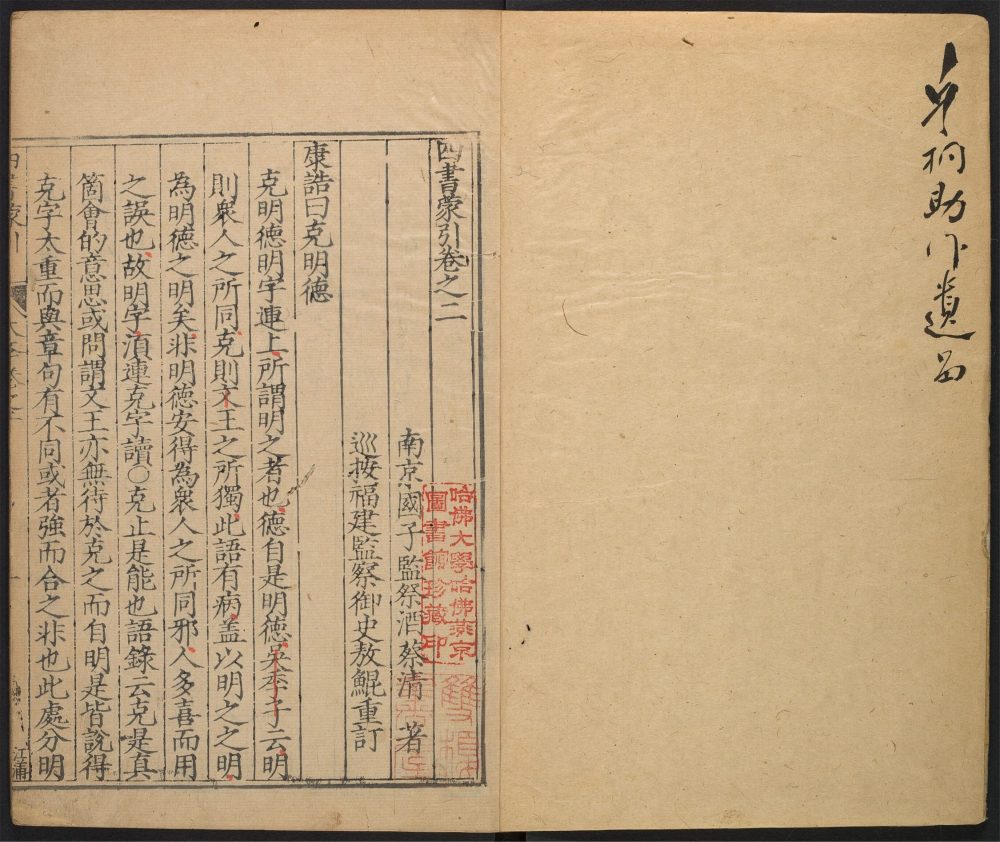 助作遺
四書蒙引卷之二
南京國子監祭酒蔡清 著
巡按福建監察御史敖鯤重訂
哈佛大學哈佛燕京
圖書館珍藏印
康誥曰克明德
克明德明字連上所謂明之者也德自是明德吳季子云明
則衆人之所同克則文王之所獨此語有病盖以明之之明
為明德之明矣非明德安得為衆人之所同邪人多喜而用
之誤也故明字湏連克字讀○克止是能也語錄云克是真
箇會的意思或問謂文王亦無待於克之而自明是皆說得
克字太重而與章句有不同或者強而合之非也此處分明
四書蒙引
江浦